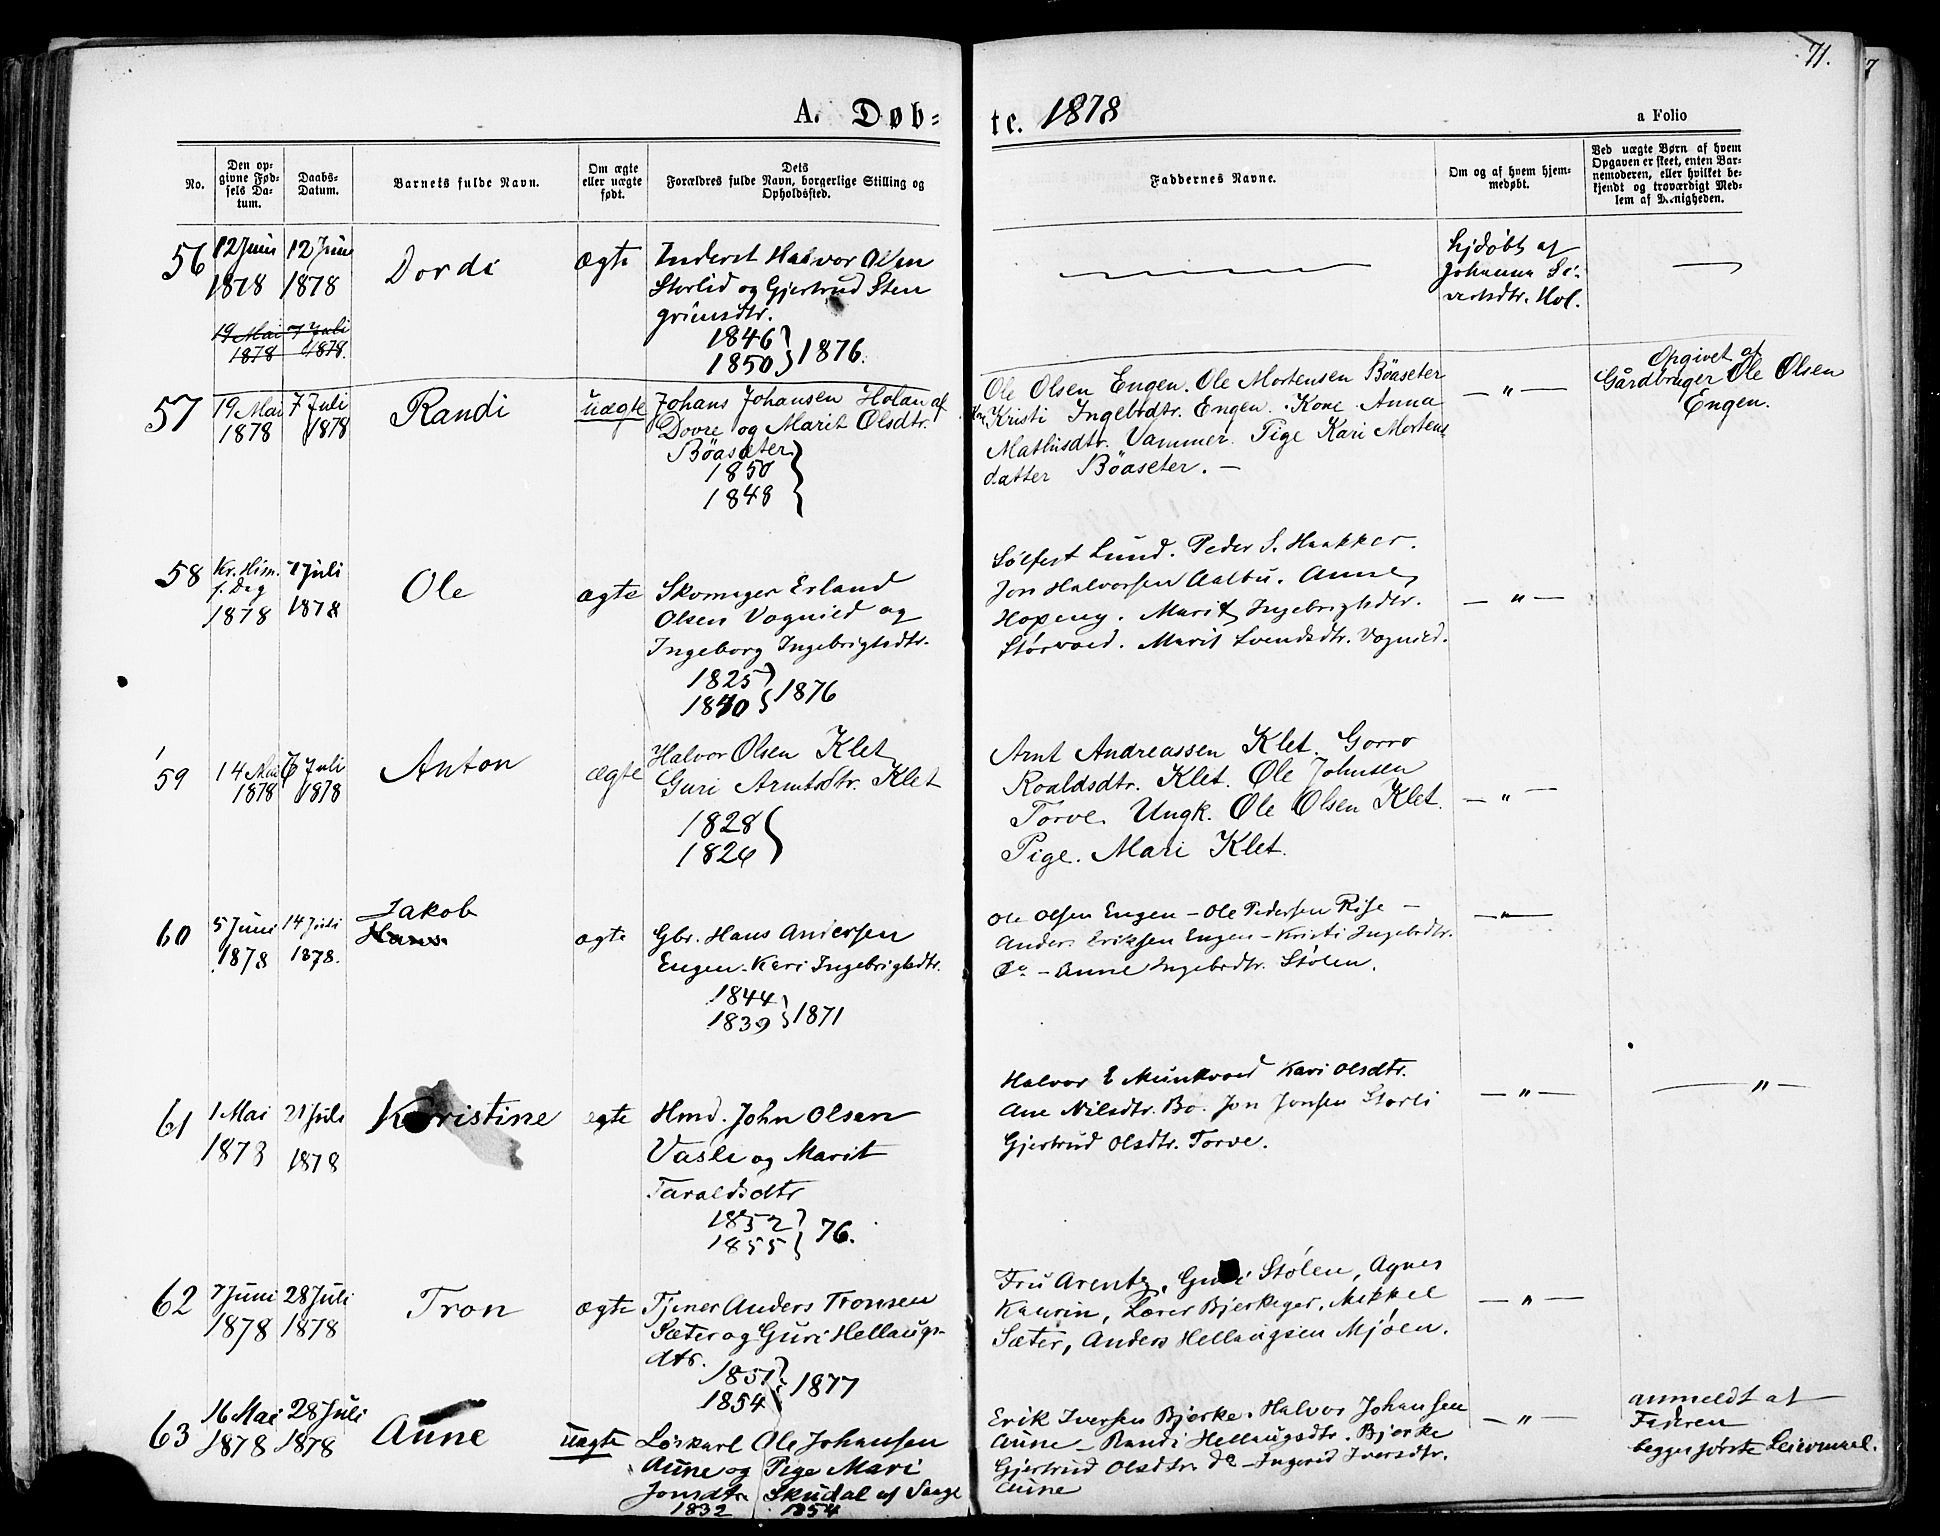 71.
A. Døb=
te. 1878
a Folio
No.
Den op-
givne Fød-
sels Da-
tum.
Daabs-
Datum.
Barnets fulde Navn.
Om ægte
eller uægte
født.
Dets
Forældres fulde Navn, borgerlige Stilling og
Opholdssted.
Faddernes Navne.
Om og af hvem hjem-
medøbt.
Ved uægte Børn af hvem
Opgaven er skeet, enten Bar-
nemoderen, eller hvilket be-
kjendt og troværdigt Med-
lem af Menigheden.
56
12 Juni
1878
12 Juni
1878
19 Mai
1878
7 Juli
1878.
Dordi
ægte
Inderst Halvor Olsen
Storlid og Gjertrud Sten
grimsdtr.
1846
1850 } 1876.
hjdøbt af
Johanna Si-
vertsdtr. Hol.
57
19 Mai
1878
7 Juli
1878
Randi
uægte
Johans Johansen Holan af
Dovre og Marit Olsdtr.
Böasæter
1850
1848
Ole Olsen Engen. Ole Mortensen Böaseter
Kristi Ingebrdtr. Engen. Kone Anna
Mathisdtr. Vammer. Pige Kari Mortens
datter Böaseter. —
— " —
Opgivet af
Gårdbruger Ole Olsen
Engen.
58
Kr. Him.
f. Dag
1878
7 Juli
1878
Ole
ægte
Skomager Erland
Olsen Vognild og
Ingeborg Ingebrigtsdtr.
1825
1840 } 1876
Sølfest Lund. Peder S. Haakker.
Jon Halvorsen Aalbu. Anne
Marit Ingebrigtsdtr.
Størvold. Marit Svendsdtr. Vognild.
— " —
59
14 Mai
1878
7 Juli
1878
Anton
ægte
Halvor Olsen Klet
Guri Arntsdtr. Klet
1828
1826
Arnt Andreassen Klet. Gorro
Roaldsdtr. Klet. Ole Johnsen
Torve. Ungk. Ole Olsen Klet.
Pige. Mari Klet.
— " —
60
5 Juni
1878
14 Juli
1878.
Jakob
Hans
ægte
Gbr. Hans Andersen
Engen - Kari Ingebrigtsdtr.
1844
1839 } 1871
Ole Olsen Engen — Ole Pedersen Rise —
Anders Eriksen Engen — Kristi Ingebrdtr.
Do — Anne Ingebrdtr. Stølen.
— " —
61
1 Mai
1878
21 Juli
1878
Kristine
ægte
Hmd. John Olsen
Vasli og Marit
Taraldsdtr
1852
1855 } 76.
Halvor E Munkvold Kari Olsdtr.
Ane Nilsdtr. Bo. Jon Jonsen Storli
Gjertrud Olsdtr. Torve.
— " —
— " —
62
7 Juni
1878
28 Juli
1878
Tron
ægte
Tjener Anders Tronsen
Sæter og Guri Hellaugs-
dtr.
1851
1854 } 1877
Fru Arentz, Guri Stølen, Agnes
Kaurin, Lærer Bjerkeger, Mikkel
Sæter, Anders Hellaugsen Mjøen.
— " —
63
16 Mai
1878
28 Juli
1878
Aune
uægte
Løskarl Ole Johansen
Aune og Pige Mari
Jonsdtr. Skudal af
1832 1854
Erik Iversen Bjørke. Halvor Johansen
Aune — Randi Hellaugsdtr. Bjerke
Gjertrud Olsdtr. do — Ingerid Iversdtr.
Aune
— " —
anmeldt af
Faderen
begges første Leiermaal.